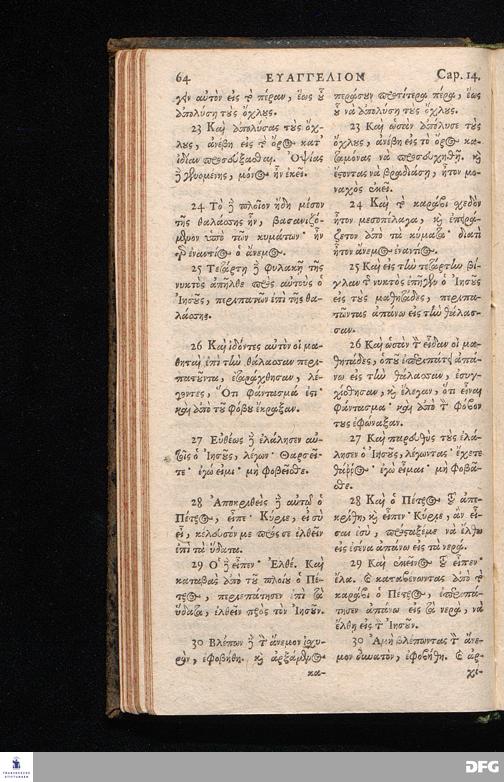 64 ΕΥΑΓΓΕΛΙΟΝ Cap. 14.
γὴν αὐτὸν εἰς τὸ πέραν, ἕως οὗ
ἀπολύσῃ τοὺς ὄχλους.
23 Καὶ ἀπολύσας τοὺς ὄχ-
λους, ἀνέβη εἰς τὸ ὄρος κατ᾽
ἰδίαν προσεύξασθαι. Ὀψίας
δὲ γενομένης, μόνος ἦν ἐκεῖ.
24 Τὸ δὲ πλοῖον ἤδη μέσον
τῆς θαλάσσης ἦν, βασανιζό-
μενον ὑπὸ τῶν κυμάτων· ἦν
γὰρ ἐναντίος ὁ ἄνεμος.
25 Τετάρτῃ δὲ φυλακῇ τῆς
νυκτὸς ἀπῆλθε πρὸς αὐτοὺς ὁ
Ἰησοῦς, περιπατῶν ἐπὶ τῆς θα-
λάσσης.
26 Καὶ ἰδόντες αὐτὸν οἱ μα-
θηταὶ ἐπὶ τὴν θάλασσαν περι-
πατοῦντα, ἐταράχθησαν, λέ-
γοντες, Ὅτι φάντασμά ἐστι·
καὶ ἀπὸ τοῦ φόβου ἔκραξαν.
27 Εὐθέως δὲ ἐλάλησεν αὐ-
τοῖς ὁ Ἰησοῦς, λέγων· Θαρσεῖ-
τε· ἐγώ εἰμι· μὴ φοβεῖσθε.
28 Ἀποκριθεὶς δὲ αὐτῷ ὁ
Πέτρος, εἶπε· Κύριε, εἰ σὺ
εἶ, κέλευσόν με πρός σε ἐλθεῖν
ἐπὶ τὰ ὕδατα.
29 Ὁ δὲ εἶπεν· Ἐλθέ. Καὶ
καταβὰς ἀπὸ τοῦ πλοίου ὁ Πέ-
τρος, περιεπάτησεν ἐπὶ τὰ
ὕδατα, ἐλθεῖν πρὸς τὸν Ἰησοῦν.
30 Βλέπων δὲ τὸν ἄνεμον ἰσχυ-
ρὸν, ἐφοβήθη. καὶ ἀρξάμενος
κα-
περάσουν προτίτερα πέρα, ἕως
οὗ νὰ ἀπολύσῃ τοὺς ὄχλους.
23 Καὶ ὡσὰν ἀπόλυσε τοὺς
ὄχλους, ἀνέβη εἰς τὸ ὄρος κα-
ταμόνας νὰ προσευχηθῇ. καὶ
ἔσοντας νὰ βραδιάσῃ, ἦτον μο-
ναχὸς ἐκεῖ.
24 Καὶ τὸ καράβι σχεδὸν
ἦτον μεσοπέλαγα, καὶ ἐπειρά-
ζετον ἀπὸ τὰ κύματα· διατὶ
ἦτον ἄνεμος ἐναντίος.
25 Καὶ εἰς τὴν τετάρτην βί-
γλαν τῆς νυκτὸς ἐπῆγεν ὁ Ἰησοῦς
εἰς τοὺς μαθητάδες, περιπα-
τῶντας ἀπάνω εἰς τὴν θάλασ-
σαν.
26 Καὶ ὡσὰν τὸν εἶδαν οἱ μα-
θητάδες, ὁποῦ ἐπεριπάτει ἀπά-
νω εἰς τὴν θάλασσαν, ἐσυγ-
χύσθησαν, καὶ ἔλεγαν, ὅτι εἶναι
φάντασμα· καὶ ἀπὸ τὸν φόβον
τους ἐφώναξαν.
27 Καὶ παρευθὺς τοὺς ἐλά-
λησεν ὁ Ἰησοῦς, λέγωντας· ἔχετε
θάρρος· ἐγὼ εἶμαι· μὴ φοβᾶ-
σθε.
28 Καὶ ὁ Πέτρος τοῦ ἀπε-
κρίθη, καὶ εἶπεν· Κύριε, ἂν εἶ-
σαι ἐσὺ, πρόσταξέ με νὰ ἔλθω
εἰς ἐσένα ἀπάνω εἰς τὰ νερά.
29 Καὶ ἐκεῖνος τοῦ εἶπεν·
ἔλα. καὶ καταβαίνωντας ἀπὸ τὸ
καράβι ὁ Πέτρος, ἐπεριπά-
τησεν ἀπάνω εἰς τὰ νερά, νὰ
ἔλθῃ εἰς τὸν Ἰησοῦν.
30 Ἀμὴ βλέπωντας τὸν ἄνε-
μον δυνατὸν, ἐφοβήθη. καὶ ἀρ-
χι-
FRANCKESCHE
STIFTUNGEN
DFG